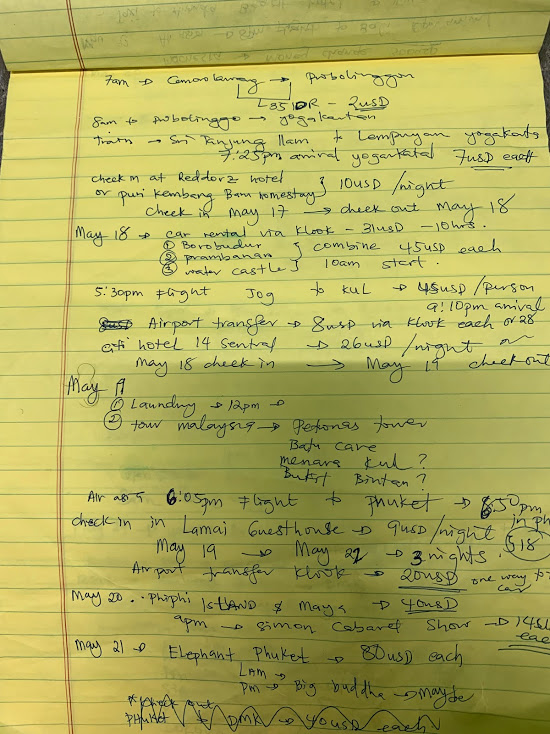 7am → Cemorolawang → probolinggon
↳ 35 IDR - 2USD
8am to probolinggo → yogakartan
train → Sri Tanjung 11am to Lempuyan yogakarta
7:25pm arrival yogarkatal 7USD each
check in at Reddorz hotel
or puri kembang Baru homestay } 10USD /night
check in May 17 → check out May 18
May 18 → car rental via klook - 31USD - 10hrs.
① Borobudur
② prambanan } combine 45USD each
③ water castle } 10am start.
5:30pm flight Jog to KUL → 45USD /person
9:10pm arrival
Airport transfer → 8USD via klook each or 28
citi hotel 14 Sentral → 26USD /night
May 18 check in → May 19 check out
May 19
① Laundry → 12pm →
② tour malaysia → Petronas tower
Batu cave
menara kul ?
Bukit Bintan ?
Air asia 6:05pm flight to Phuket → 6:50pm
in ph
check in in Lamai Guesthouse → 9USD/night $18
May 19 → May 22 → 3 nights.
Airport transfer klook → 20USD one way to
car
May 20 .. Phiphi ISLAND & Maya → 40USD
9pm → Simon Cabaret Show → 14
each
May 21 → Elephant phuket → 80USD each
pm → Big buddha → maybe
* check out
PHuket to DMK → 40USD each